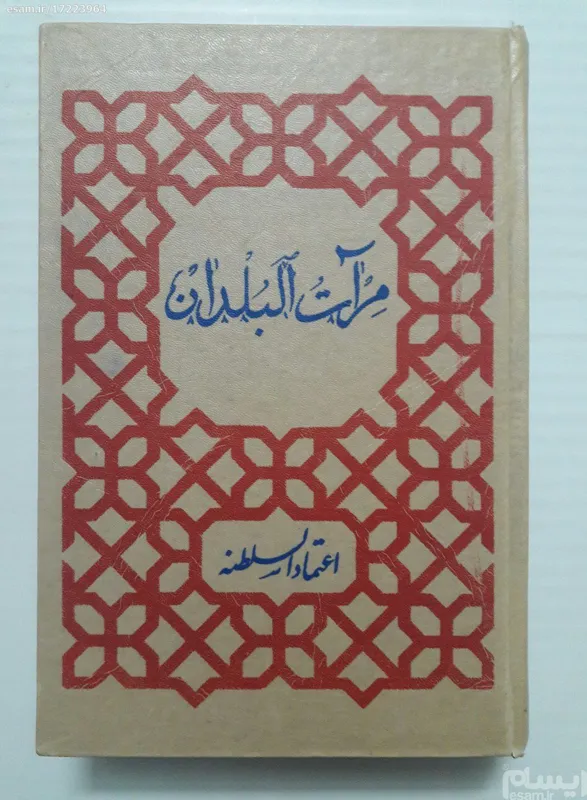 esam.ir/17273964
مِرْآتُ اَلبُلْدانْ
اعتمادالسلطنه
ایسام
esam.ir